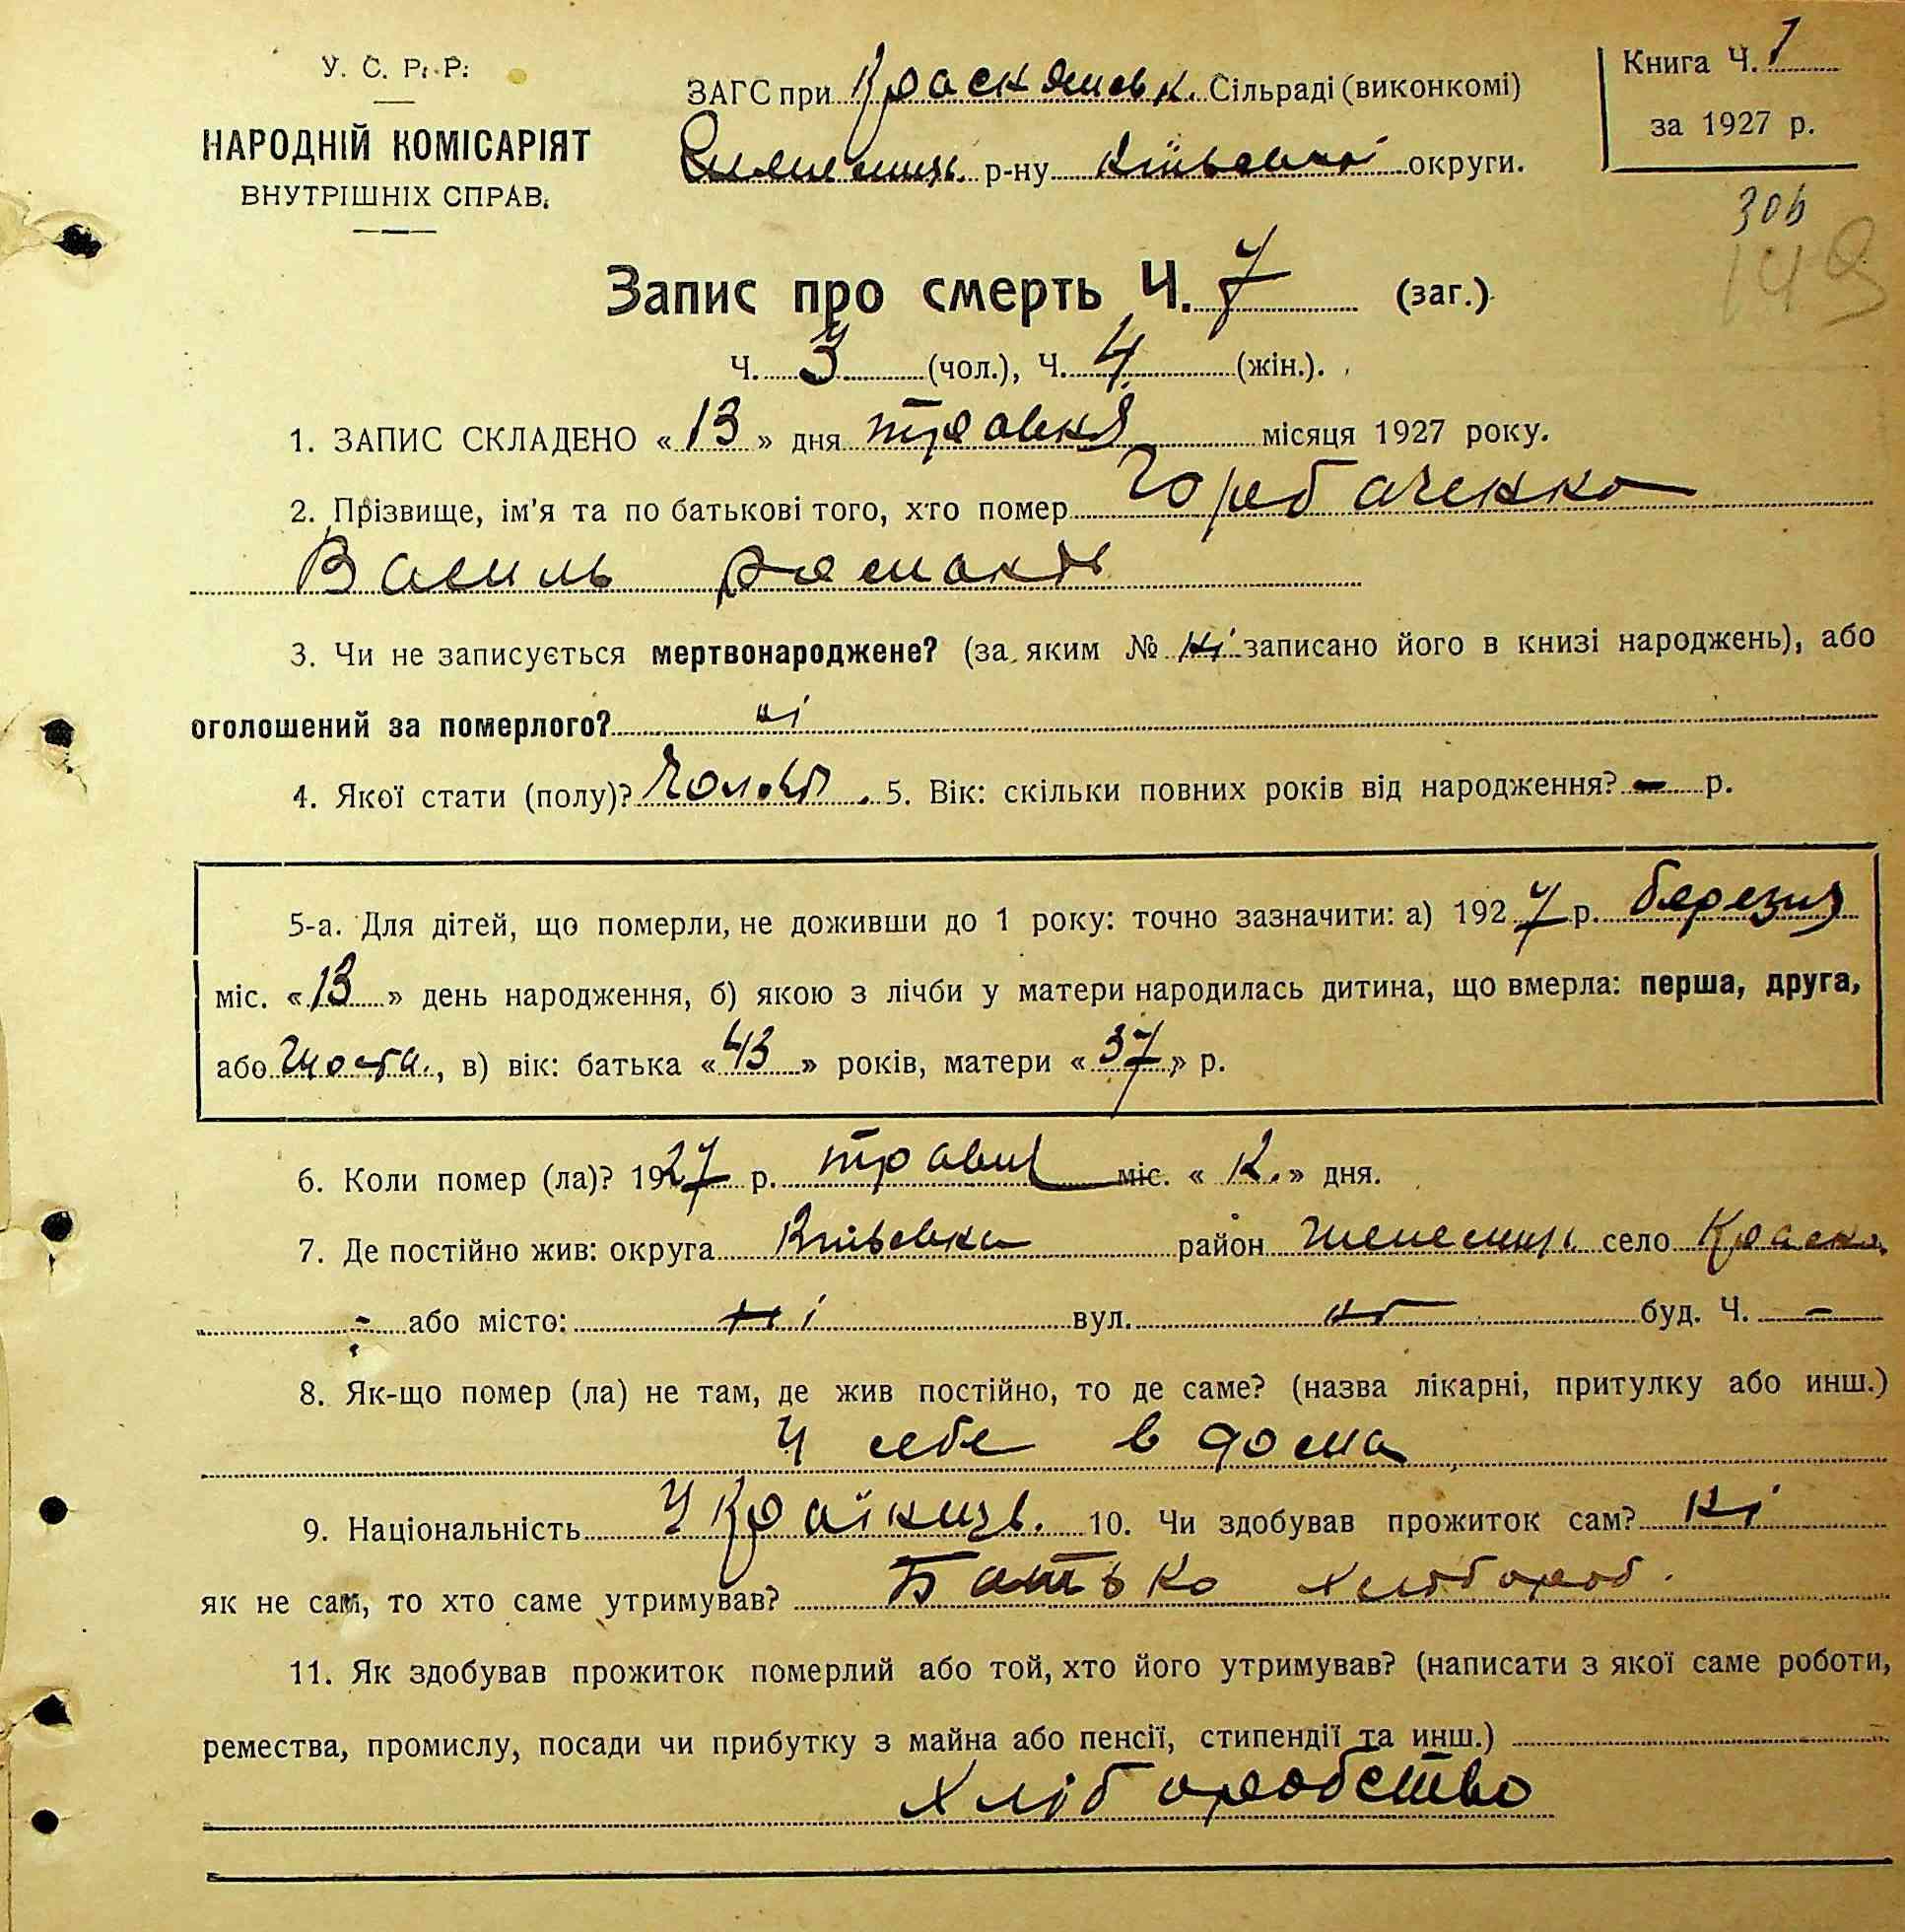 У. С. Р. Р.
НАРОДНІЙ КОМІСАРІЯТ
ВНУТРІШНІХ СПРАВ.
ЗАГС при Сільраді (виконкомі)
р-ну Київської округи.
Книга Ч. 1
за 1927 р.
306
149
Запис про смерть Ч. 7 (заг.)
Ч. 3 (чол.), Ч. 4 (жін.).
1. ЗАПИС СКЛАДЕНО «13» дня травня місяця 1927 року.
2. Прізвище, ім'я та по батькові того, хто помер Горбаченко
Василь Романів
3. Чи не записується мертвонароджене? (за яким № ні записано його в книзі народжень), або
оголошений за померлого? ні
4. Якої стати (полу)? Чолов. 5. Вік: скільки повних років від народження? - р.
5-а. Для дітей, що померли, не доживши до 1 року: точно зазначити: а) 1927 р. березня
міс. «13» день народження, б) якою з лічби у матери народилась дитина, що вмерла: перша, друга,
або шоста, в) вік: батька «43» років, матери «37» р.
6. Коли помер (ла)? 1927 р. травня міс. «12» дня.
7. Де постійно жив: округа Київська район село
- або місто: ні вул. ні буд. Ч. -
8. Як-що помер (ла) не там, де жив постійно, то де саме? (назва лікарні, притулку або инш.)
У себе в дома
9. Національність Українець. 10. Чи здобував прожиток сам? ні
як не сам, то хто саме утримував? Батько хлібороб.
11. Як здобував прожиток померлий або той, хто його утримував? (написати з якої саме роботи,
ремества, промислу, посади чи прибутку з майна або пенсії, стипендії та инш.)
Хліборобство